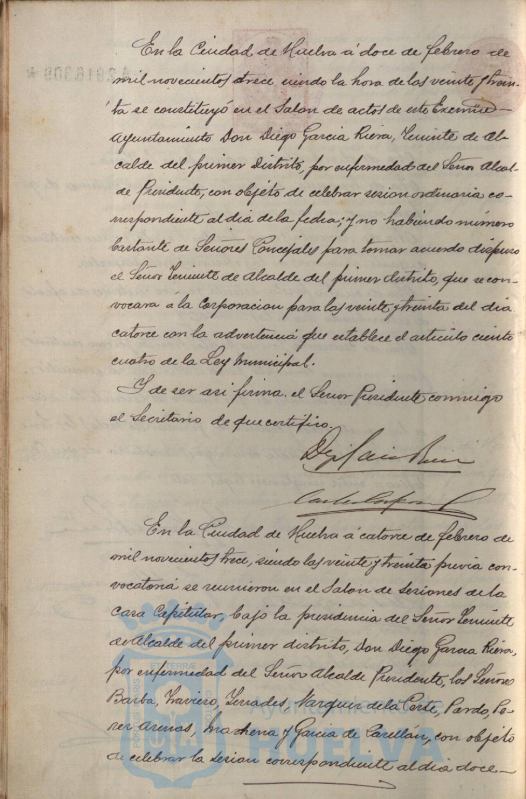 En la Ciudad de Huelva á doce de febrero de
mil novecientos trece siendo la hora de las veinte y trein-
ta se constituyó en el Salon de actos de este Excmo
Ayuntamiento Don Diego Garcia Riera, Teniente de Al-
calde del primer Distrito, por enfermedad del Señor Alcal-
de Presidente, con objeto de celebrar sesion ordinaria co-
rrespondiente al dia de la fecha; y no habiendo número
bastante de Señores Concejales para tomar acuerdo dispuso
el Señor Teniente de Alcalde del primer distrito, que se con-
vocara a la Corporacion para las veinte y treinta del dia
catorce con la advertencia que establece el articulo ciento
cuatro de la Ley Municipal.
Y de ser asi firma el Señor Presidente conmigo
el Secretario de que certifico.
En la Ciudad de Huelva á catorce de febrero de
mil novecientos trece, siendo las veinte y treinta previa con-
vocatoria se reunieron en el Salon de Sesiones de la
Casa Capitular, bajo la presidencia del Señor Teniente
de Alcalde del primer distrito, Don Diego Garcia Riera,
por enfermedad del Señor Alcalde Presidente, los Señores
Barba, Traviero, Terrades, Vazquez de la Corte, Pardo, Pe-
rez Arenas, Machena y Garcia de con objeto
de celebrar la sesion correspondiente al dia doce.
Ayuntamiento de
HUELVA